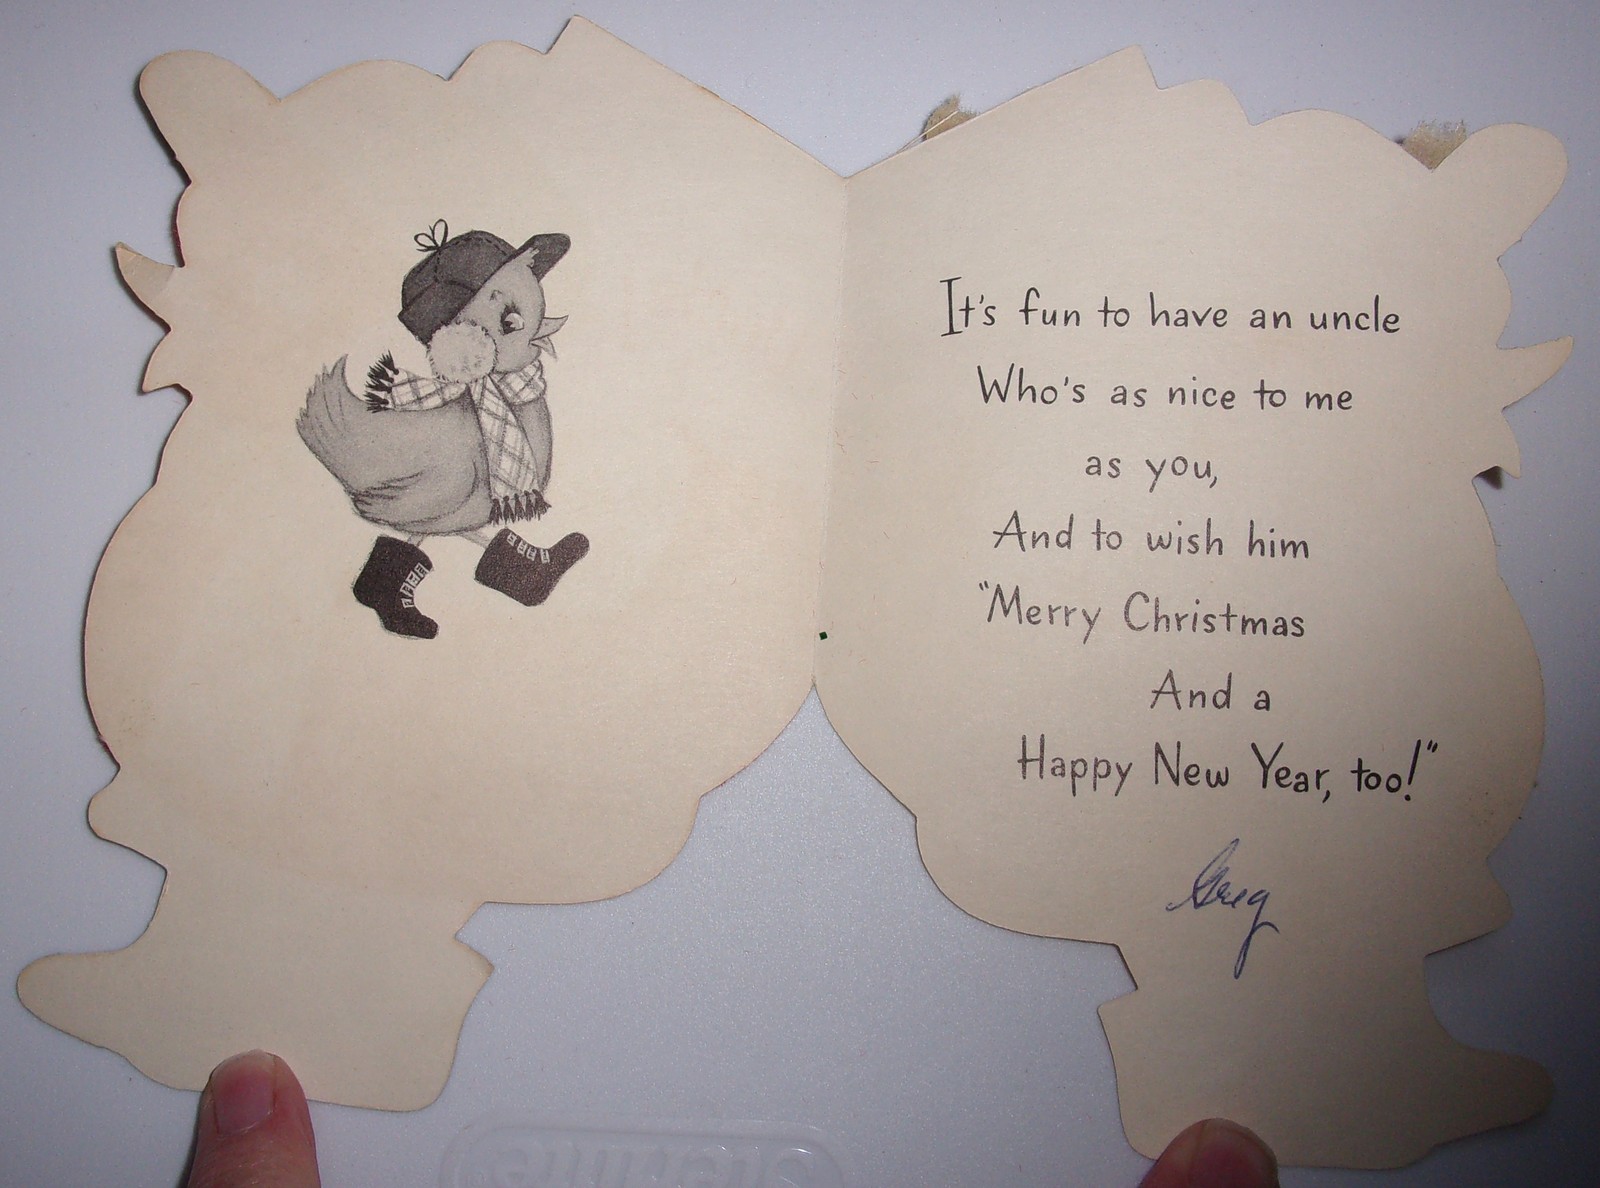 It's fun to have an uncle
Who's as nice to me
as you,
And to wish him
"Merry Christmas
And a
Happy New Year, too!"
Greg